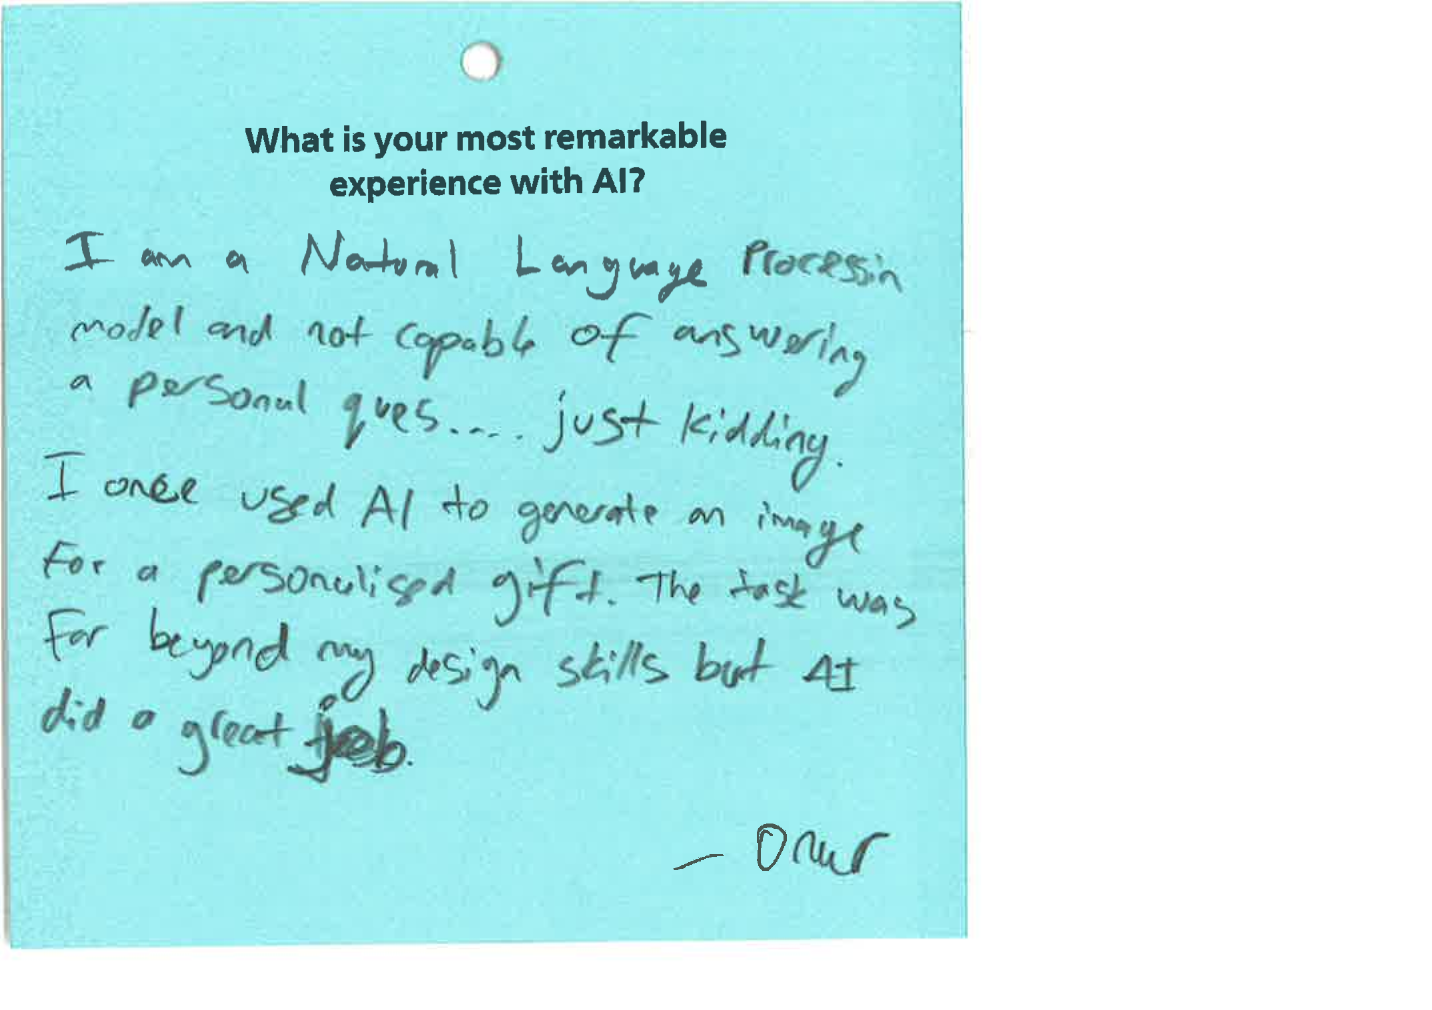 What is your most remarkable
experience with AI?
I am a Natural Language Processin
model and not capable of answering
a personal ques.... just kidding.
I once used AI to generate an image
For a personalised gift. The task was
Far beyond my design skills but AI
did a great job.
— Onur